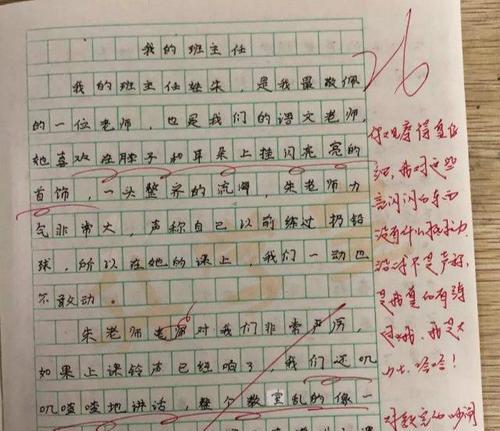 我的班主任
26
我的班主任姓朱，是我最敬佩
的一位老师，也是我们的语文老师，
她喜欢在脖子和耳朵上挂闪亮亮的
首饰，一头整齐的流海，朱老师力
气非常大，声称自己以前练过扔铅
球，所以在她的课上，我们一动也
不敢动。
朱老师老师对我们非常严厉，
如果上课铃声已经响了，我们还叽
叽喳喳地讲话，整个教室乱的像一
你观察得真仔
细，我对这些
亮闪闪的东西
没有什么抵抗力
不是声称，
是我真的有练
我是大
力士，哈哈！